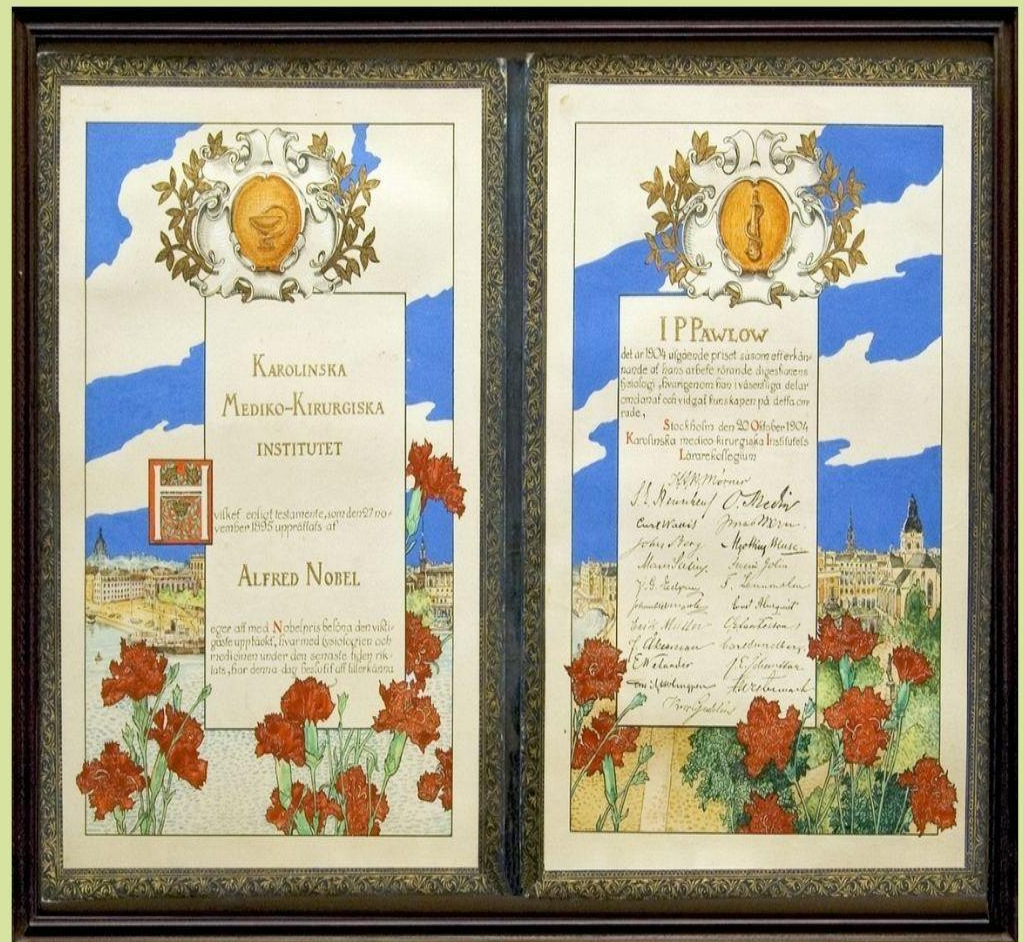 KAROLINSKA
MEDIKO-KIRURGISKA
INSTITUTET
H
vilket enligt testamente, som den 27 no-
vember 1895 upprättats af
ALFRED NOBEL
eger att med Nobelpris belöna den vikti-
gaste upptäckt, hvarmed fysiologien och
medicinen under den senaste tiden rik-
tats, har denna dag beslutit att tillerkänna
I P PAWLOW
det år 1904 utgående priset såsom ett erkän-
nande af hans arbete rörande digestionens
fysiologi, hvarigenom han i väsentliga delar
omdanat och vidgat kunskapen på detta om-
råde,
Stockholm den 20 Oktober 1904
Karolinska medico-kirurgiska Institutets
Lärarekollegium
Mörner
O. Medin
Curt Wallis
John Berg
Erik Müller
J. Åkerman